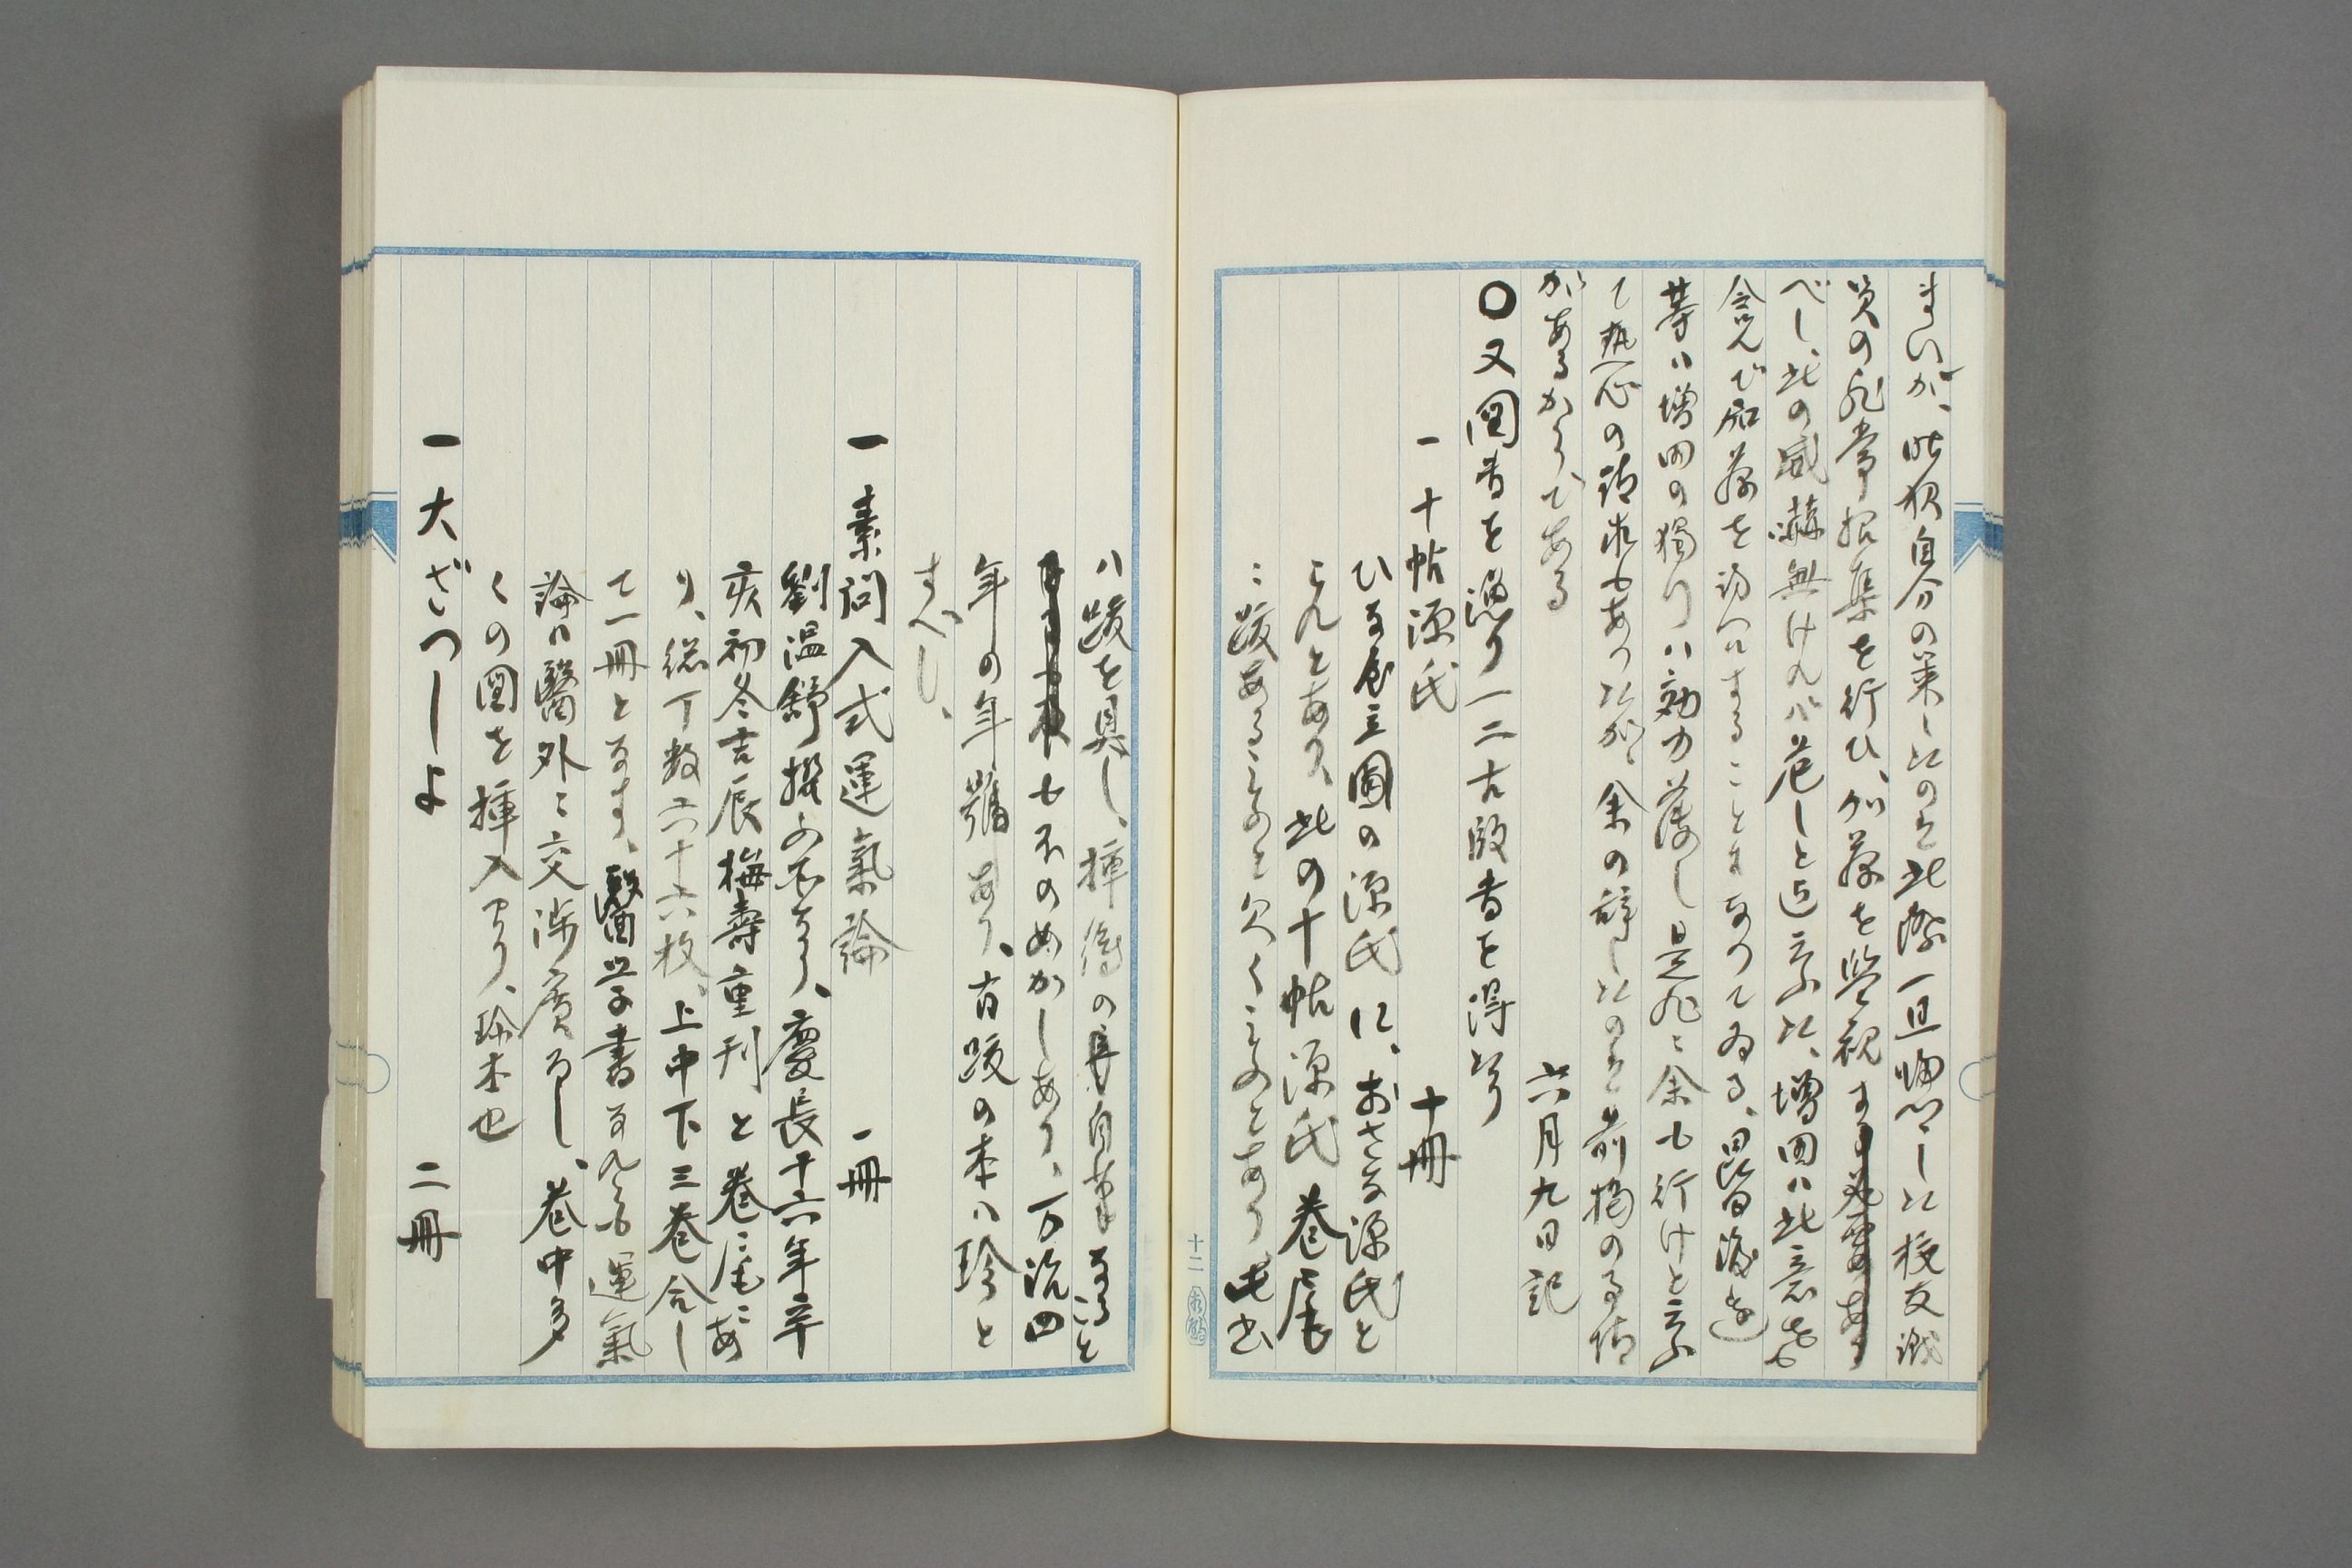 まいが、昨夜自分の策したのを此際一旦帰らした校友議
員の非常招集を行ひ、加藤を監視す
べし、此の威嚇無ければ危しと迄云ふた、増田ハ此意を
含んで加藤を訪ハすることになつてゐる、田
等ハ増田の獨りハ効力薄し是非ニ余も行けと云ふ
て熱心の請求もあつたが、余の辞したのを前掲の事情
があるからである
六月九日記
〇又図書を漁り一二古版書を得たり
一十帖源氏 十冊
ひな屋立圃の源氏に、おさな源氏と
これとあり、此の十帖源氏巻尾
ニ跋あるものと欠くものとあり、此書
ハ跋を具し、挿絵の自筆なること
も不のめかしあり、万治四
年の年號あり、有跋の本ハ珍と
すべし、
一素問入式運氣論 一冊
劉温舒撰の本なり、慶長十六年辛
亥初冬吉辰梅壽重刊と巻尾にあ
り、総丁数六十六枚、上中下三巻合し
て一冊となす、醫学書なれども運氣
論ハ醫外ニ交渉廣るし、巻中多
くの図を挿入せり、珍本也
一大ざつしよ 二冊
十二